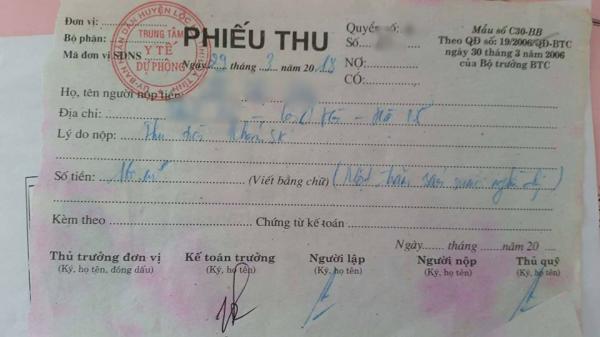 Đơn vị:
Bộ phận:
Mã đơn vị SDNS
ỦY BAN NHÂN DÂN HUYỆN LỘC
TRUNG TÂM
Y TẾ
DỰ PHÒNG
PHIẾU THU
Ngày 29 tháng 3 năm 2018
Quyển số:
Số
NỢ:
CÓ:
Mẫu số C30-BB
Theo QĐ số: 19/2006/QĐ-BTC
ngày 30 tháng 3 năm 2006
của Bộ trưởng BTC
Họ, tên người nộp tiền:
Địa chỉ:
Lý do nộp: Thu tiền khám sk
Số tiền: (Viết bằng chữ) (Một trăm sáu mươi nghìn
Kèm theo Chứng từ kế toán
Ngày tháng năm 20
Thủ trưởng đơn vị Kế toán trưởng Người lập Người nộp Thủ quỹ
(Ký, họ tên, đóng dấu) (Ký, họ tên) (Ký, họ tên) (Ký, họ tên) (Ký, họ tên)